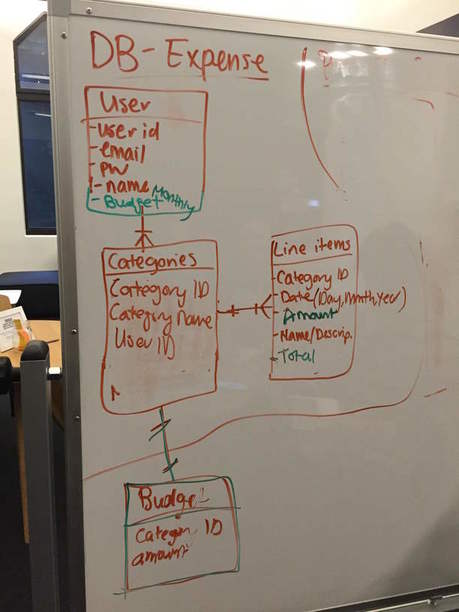 DB-Expense
User
-user id
-email
-pw
-name
-Budget Monthly
Categories
Category ID
Category Name
User ID
Line items
-Category ID
-Date(Day,Month,Year)
-Amount
-Name/Descrip.
-Total
Budget
Category ID
amount